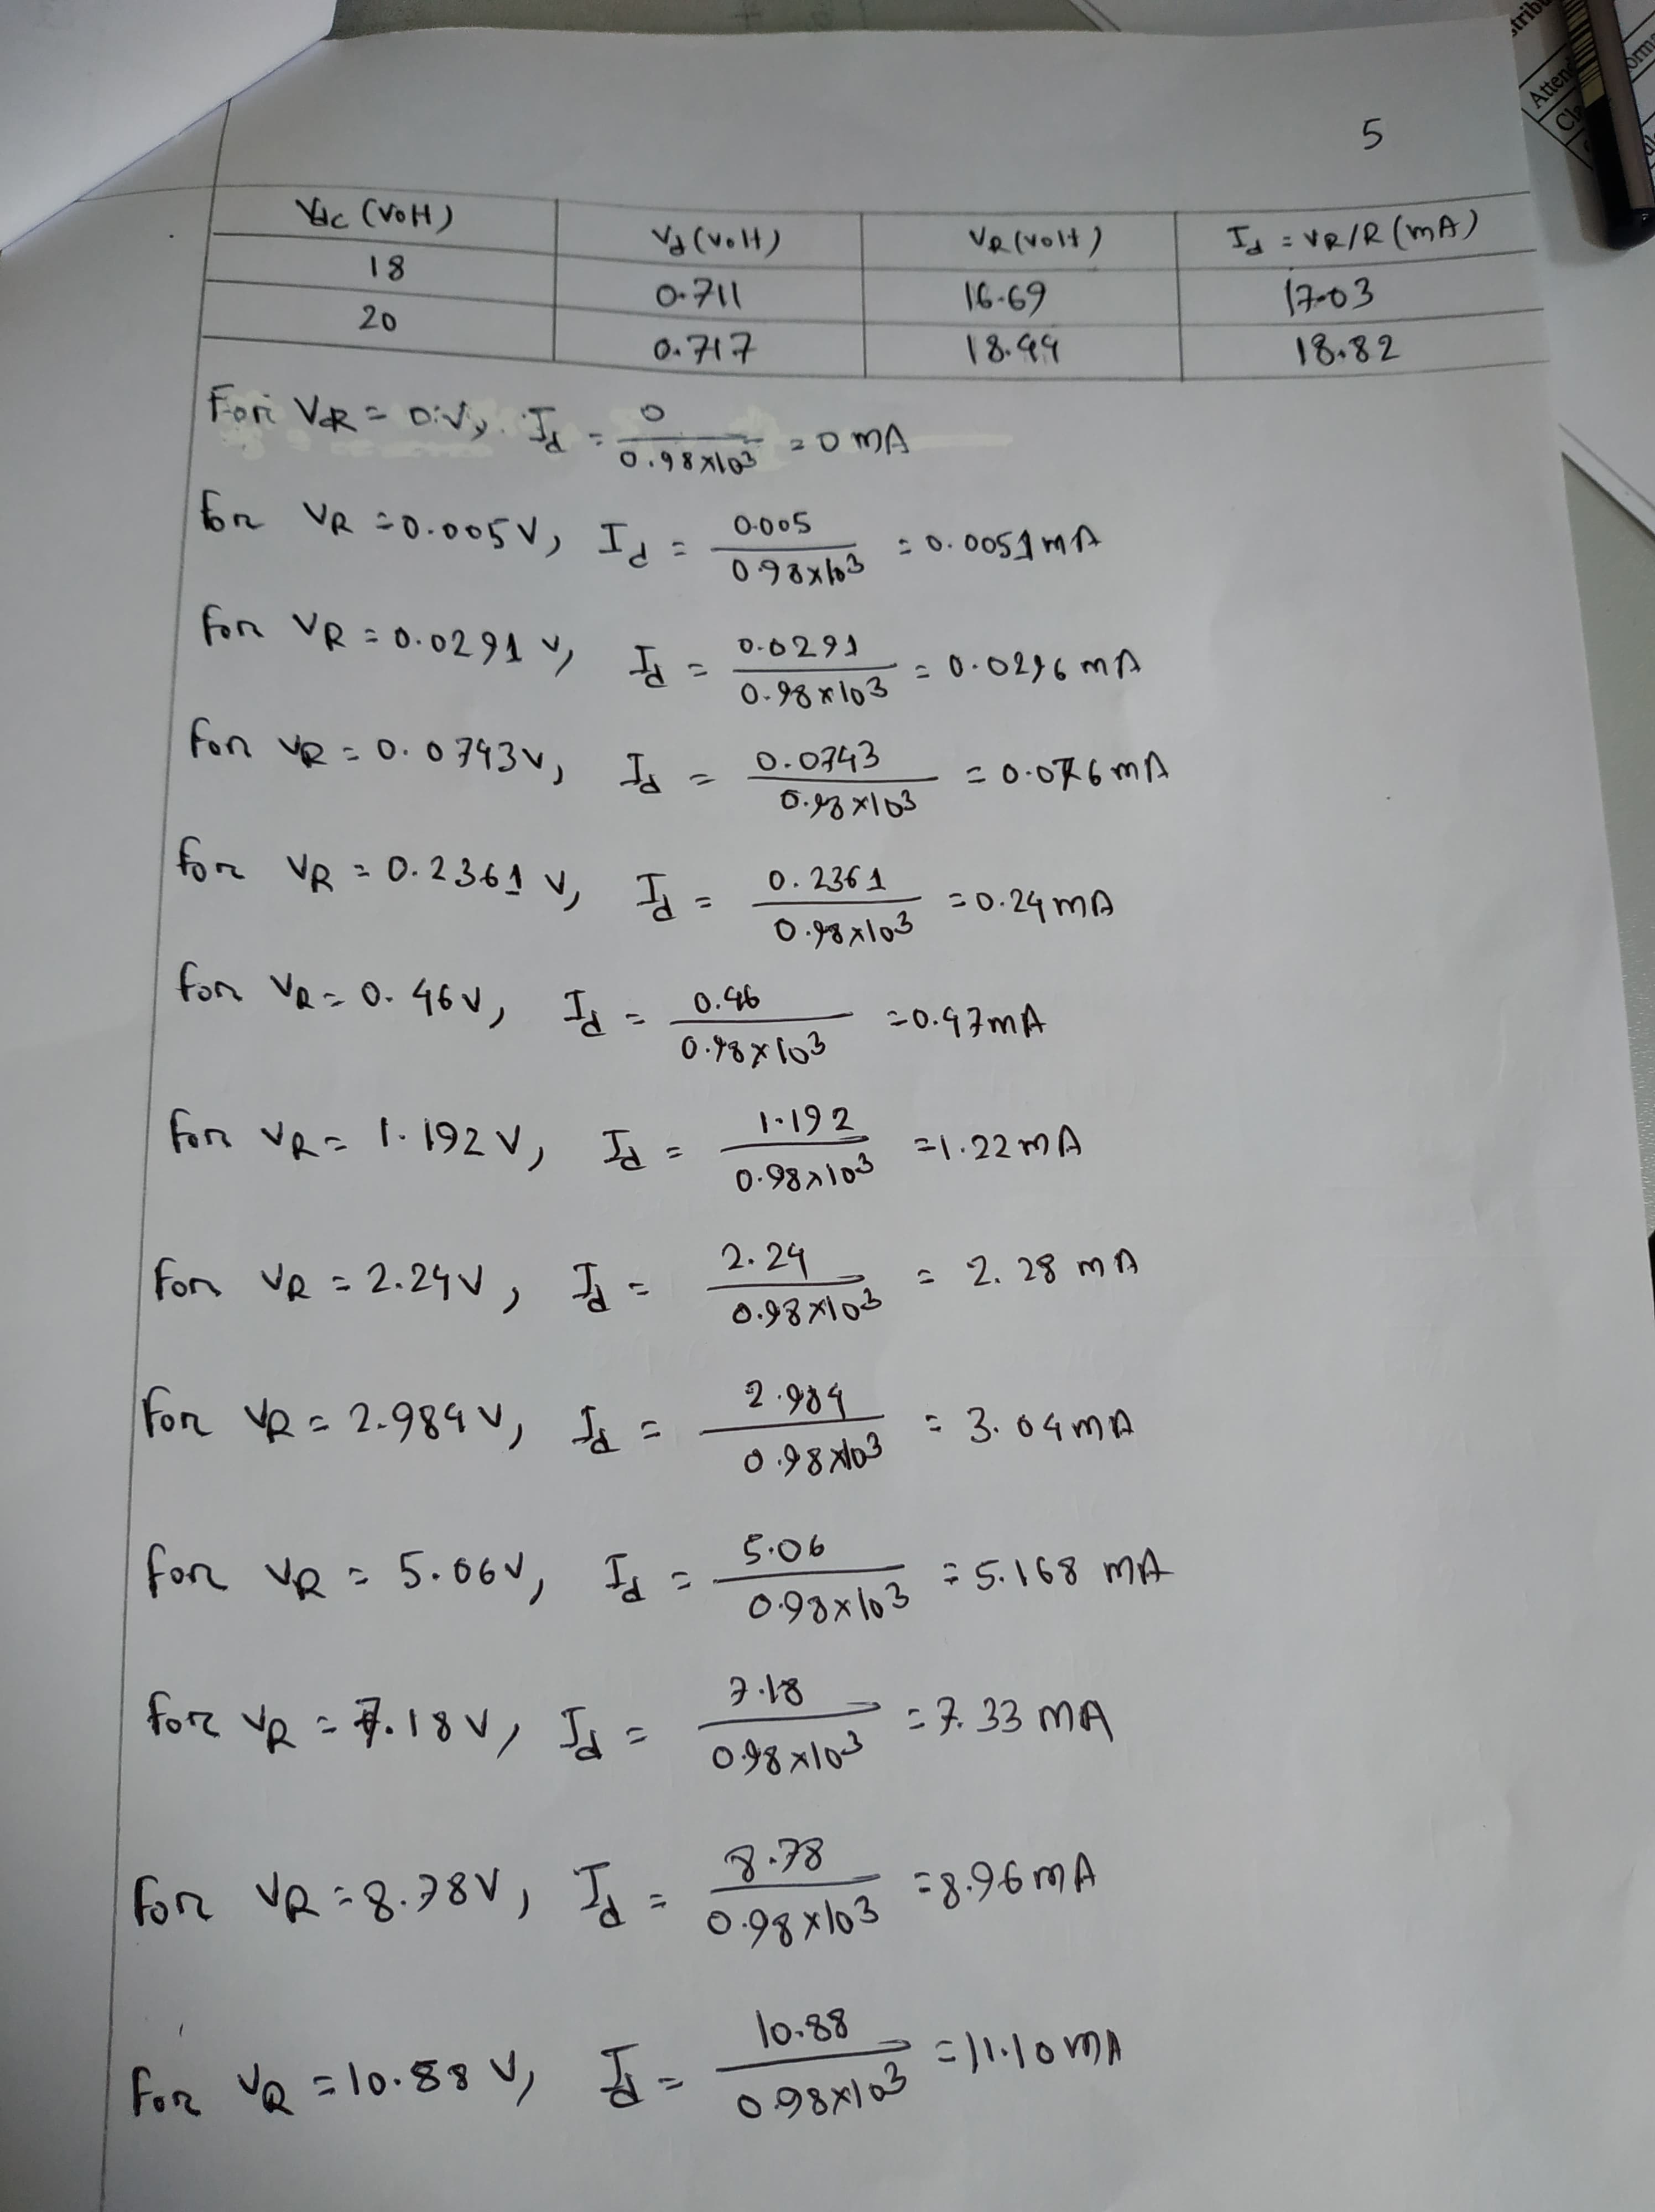 5
Vdc (volt) Vd (volt) VR (volt) Id = VR/R (mA)
18 0.711 16.69 17.03
20 0.717 18.44 18.82
For VR = 0 V, Id = 0 / 0.98×10³ = 0 mA
for VR = 0.005 V, Id = 0.005 / 0.98×10³ = 0.0051 mA
for VR = 0.0291 V, Id = 0.0291 / 0.98×10³ = 0.0296 mA
for VR = 0.0743 V, Id = 0.0743 / 0.98×10³ = 0.076 mA
for VR = 0.2361 V, Id = 0.2361 / 0.98×10³ = 0.24 mA
for VR = 0.46 V, Id = 0.46 / 0.98×10³ = 0.47 mA
for VR = 1.192 V, Id = 1.192 / 0.98×10³ = 1.22 mA
for VR = 2.24 V, Id = 2.24 / 0.98×10³ = 2.28 mA
for VR = 2.984 V, Id = 2.984 / 0.98×10³ = 3.04 mA
for VR = 5.06 V, Id = 5.06 / 0.98×10³ = 5.168 mA
for VR = 7.18 V, Id = 7.18 / 0.98×10³ = 7.33 mA
for VR = 8.78 V, Id = 8.78 / 0.98×10³ = 8.96 mA
for VR = 10.88 V, Id = 10.88 / 0.98×10³ = 11.10 mA